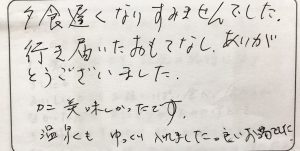 夕食遅くなりすみませんでした。
行き届いたおもてなし、ありが
とうございました。
カニ美味しかったです。
温泉も ゆっくり入れました。良いお湯でした